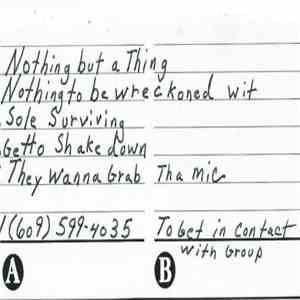 Nothing but a Thing
Nothing to be wreckoned wit
Sole Surviving
Getto Shakedown
They Wanna Grab Tha mic
(609) 599-4035 To Get in Contact
with Group
A B